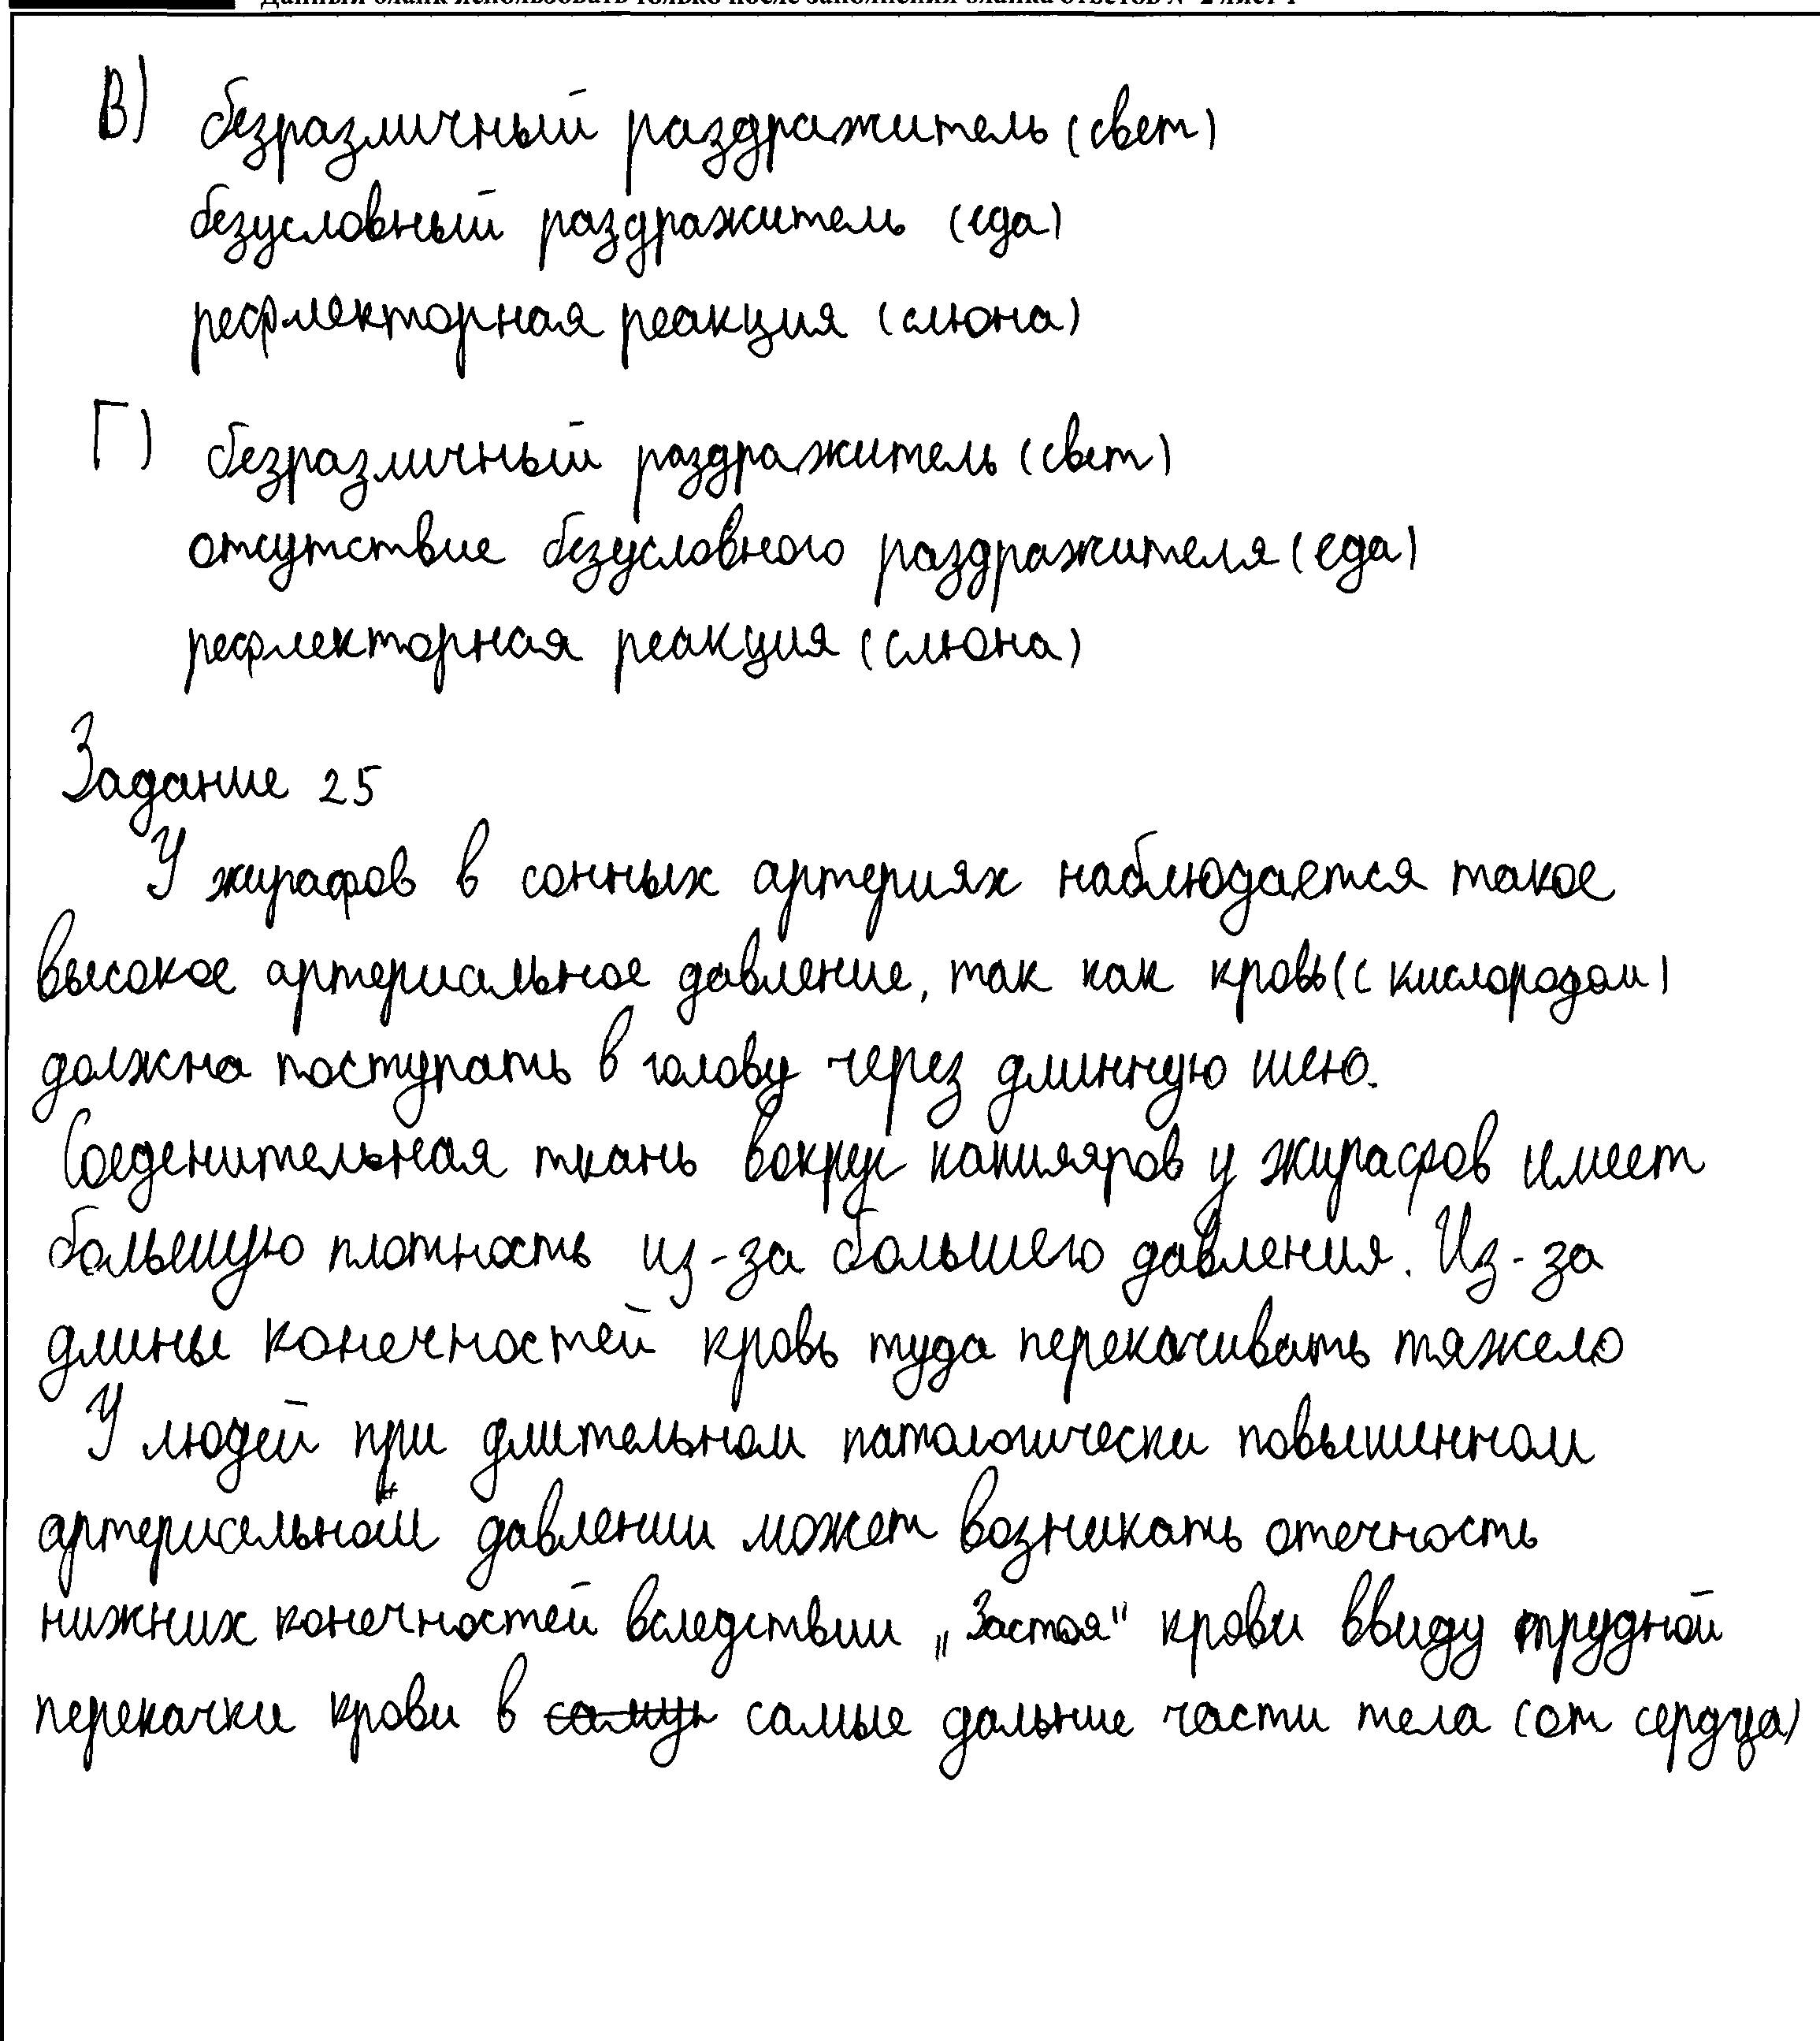 Данный бланк использовать только после заполнения бланка ответов № 2 лист 1
В) безразличный раздражитель (свет)
безусловный раздражитель (еда)
рефлекторная реакция (слюна)
Г) безразличный раздражитель (свет)
отсутствие безусловного раздражителя (еда)
рефлекторная реакция (слюна)
Задание 25
У жирафов в сонных артериях наблюдается такое
высокое артериальное давление, так как кровь (с кислородом)
должна поступать в голову через длинную шею.
Соеденительная ткань вокруг капиляров у жирафов имеет
большую плотность из-за большего давления. Из-за
длины конечностей кровь туда перекачивать тяжело
У людей при длительном патологически повышенном
артериальном давлении может возникать отечность
нижних конечностей вследствии „Застоя" крови ввиду трудной
перекачки крови в самую самые дальние части тела (от сердца)